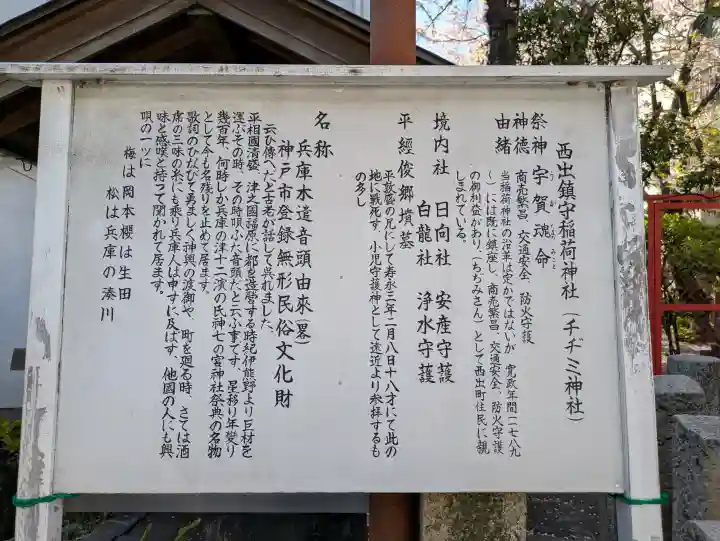 西出鎮守稲荷神社(チヂミ神社)
祭神 宇賀魂命
うがのみたまのみこと
神徳 商売繁昌、交通安全、防火守護
由緒 当稲荷神社の沿革は定かではないが 寛政年間(一七八九
〜)には既に鎮座し、商売繁昌、交通安全、防火守護
の御利益があり(ちぢみさん)として西出町住民に親
しまれている。
境内社 日向社 安産守護
白龍社 浄水守護
平經俊郷墳墓
平敦盛の兄にして寿永三年二月八日十八才にて此の
地に戦死す、小児守護神として遠近より参拝するも
の多し
名称
兵庫木遣音頭由來(畧)
神戸市登録無形民俗文化財
云ひ傳へだと古老が話して呉れました
平相國清盛、津之國福原に都を造營する時紀伊熊野より巨材を
運ぶその時、その時唄ふた音頭だと云ふ事です、星移り年変り
幾百年、何時しか兵庫の津十二濱の氏神七の宮神社祭典の名物
として今も名残りを止めて居ます。
歌詞のみやびて勇ましく神輿の渡御や、町を廻る時、さては酒
席の三味の糸にも乗り兵庫人は申すに及ばず、他國の人にも興
味と感嘆を持って聞かれて居ます。
唄の一ツに
梅は岡本櫻は生田
松は兵庫の湊川